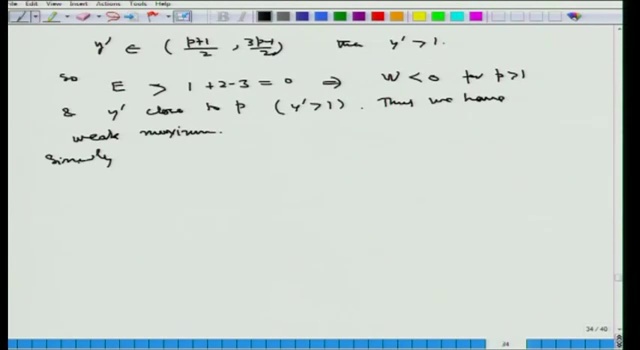 File View Insert Actions Tools Help
y' ∈ ( p+1/2 , 3p-1/2 ) then y' > 1.
So E > 1 + 2 - 3 = 0 ⇒ W < 0 for p > 1
& y' close to p ( y' > 1 ) . Thus we have
weak maximum.
Similarly
34 / 40
34